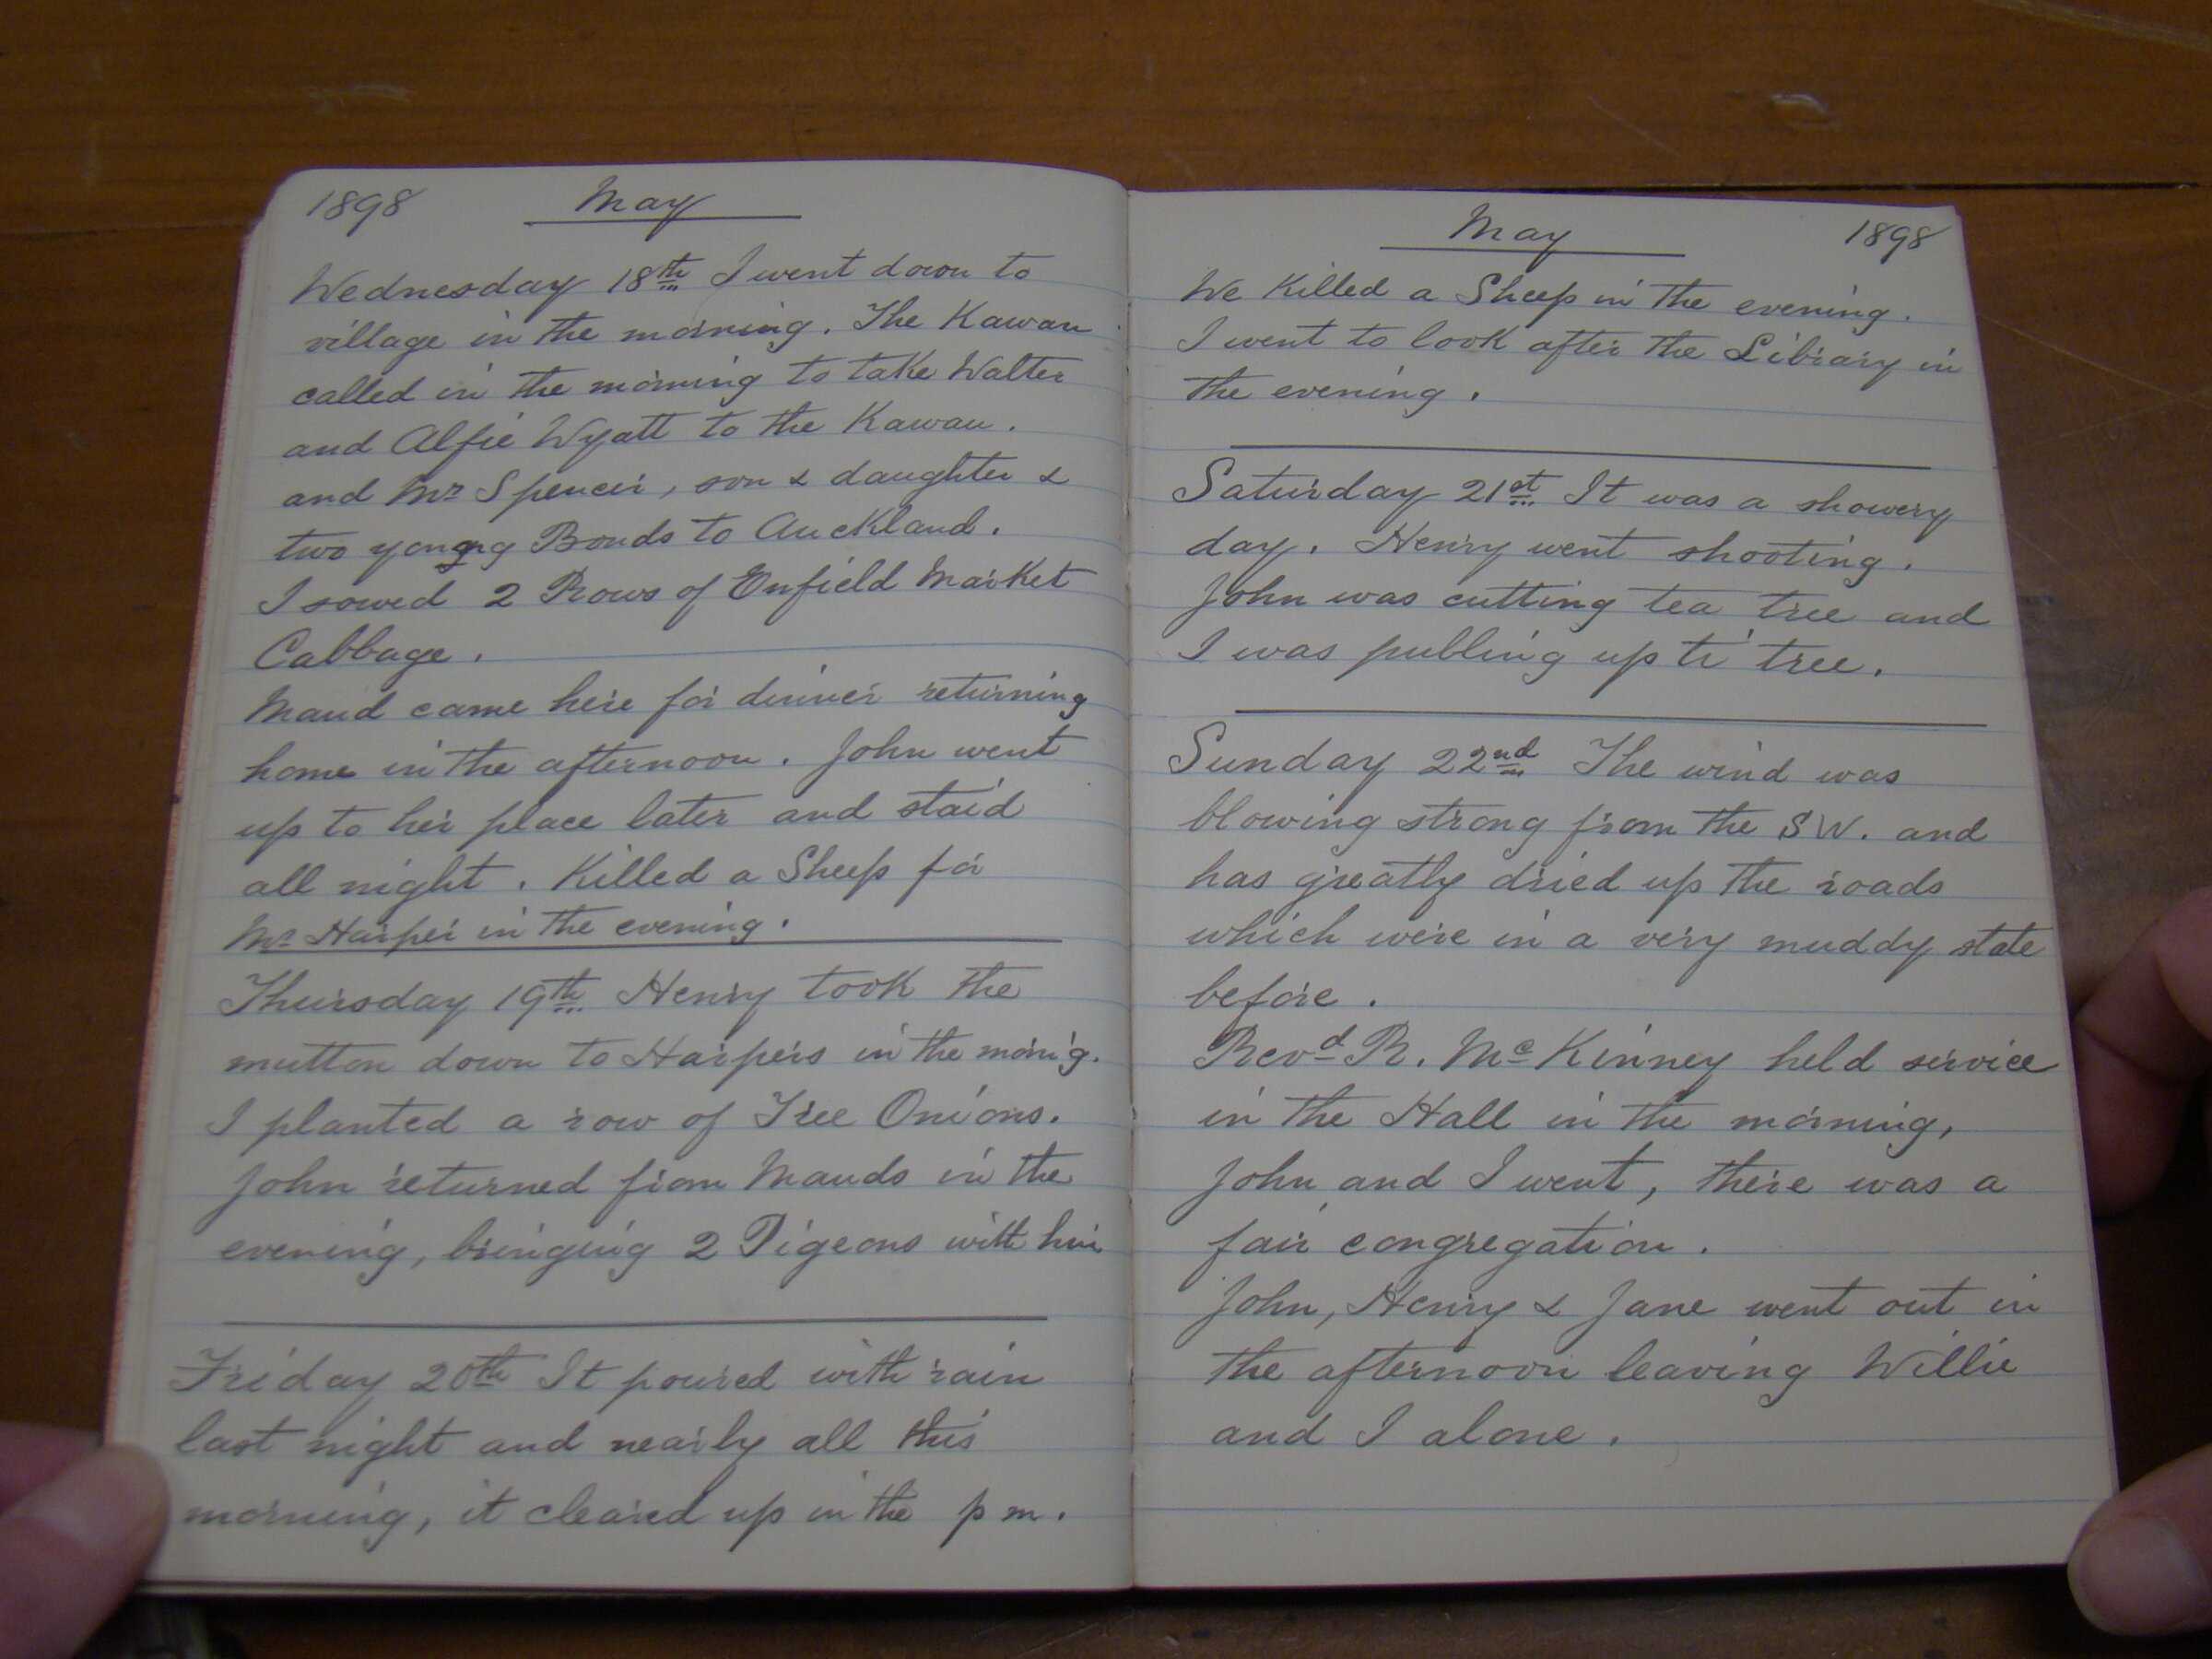 1898 May
Wednesday 18th I went down to
village in the morning. The Kawau
called in the morning to take Walter
and Alfie Wyatt to the Kawau.
and Mr Spencer, son & daughter &
two young Bonds to Auckland.
I sowed 2 Rows of Enfield Market
Cabbage.
Maud came here for dinner returning
home in the afternoon. John went
up to her place later and staid
all night. Killed a Sheep for
Mr Harper in the evening.
Thursday 19th Henry took the
mutton down to Harpers in the morn'g.
I planted a row of Tree Onions.
John returned from Mauds in the
evening, bringing 2 Pigeons with him
Friday 20th It poured with rain
last night and nearly all this
morning, it cleared up in the p m.
May 1898
We Killed a Sheep in the evening.
I went to look after the Library in
the evening.
Saturday 21st It was a showery
day. Henry went shooting.
John was cutting tea tree and
I was pulling up ti tree.
Sunday 22nd The wind was
blowing strong from the S W. and
has greatly dried up the roads
which were in a very muddy state
before.
Revd R. McKinney held service
in the Hall in the morning,
John and I went, there was a
fair congregation.
John, Henry & Jane went out in
the afternoon leaving Willie
and I alone.